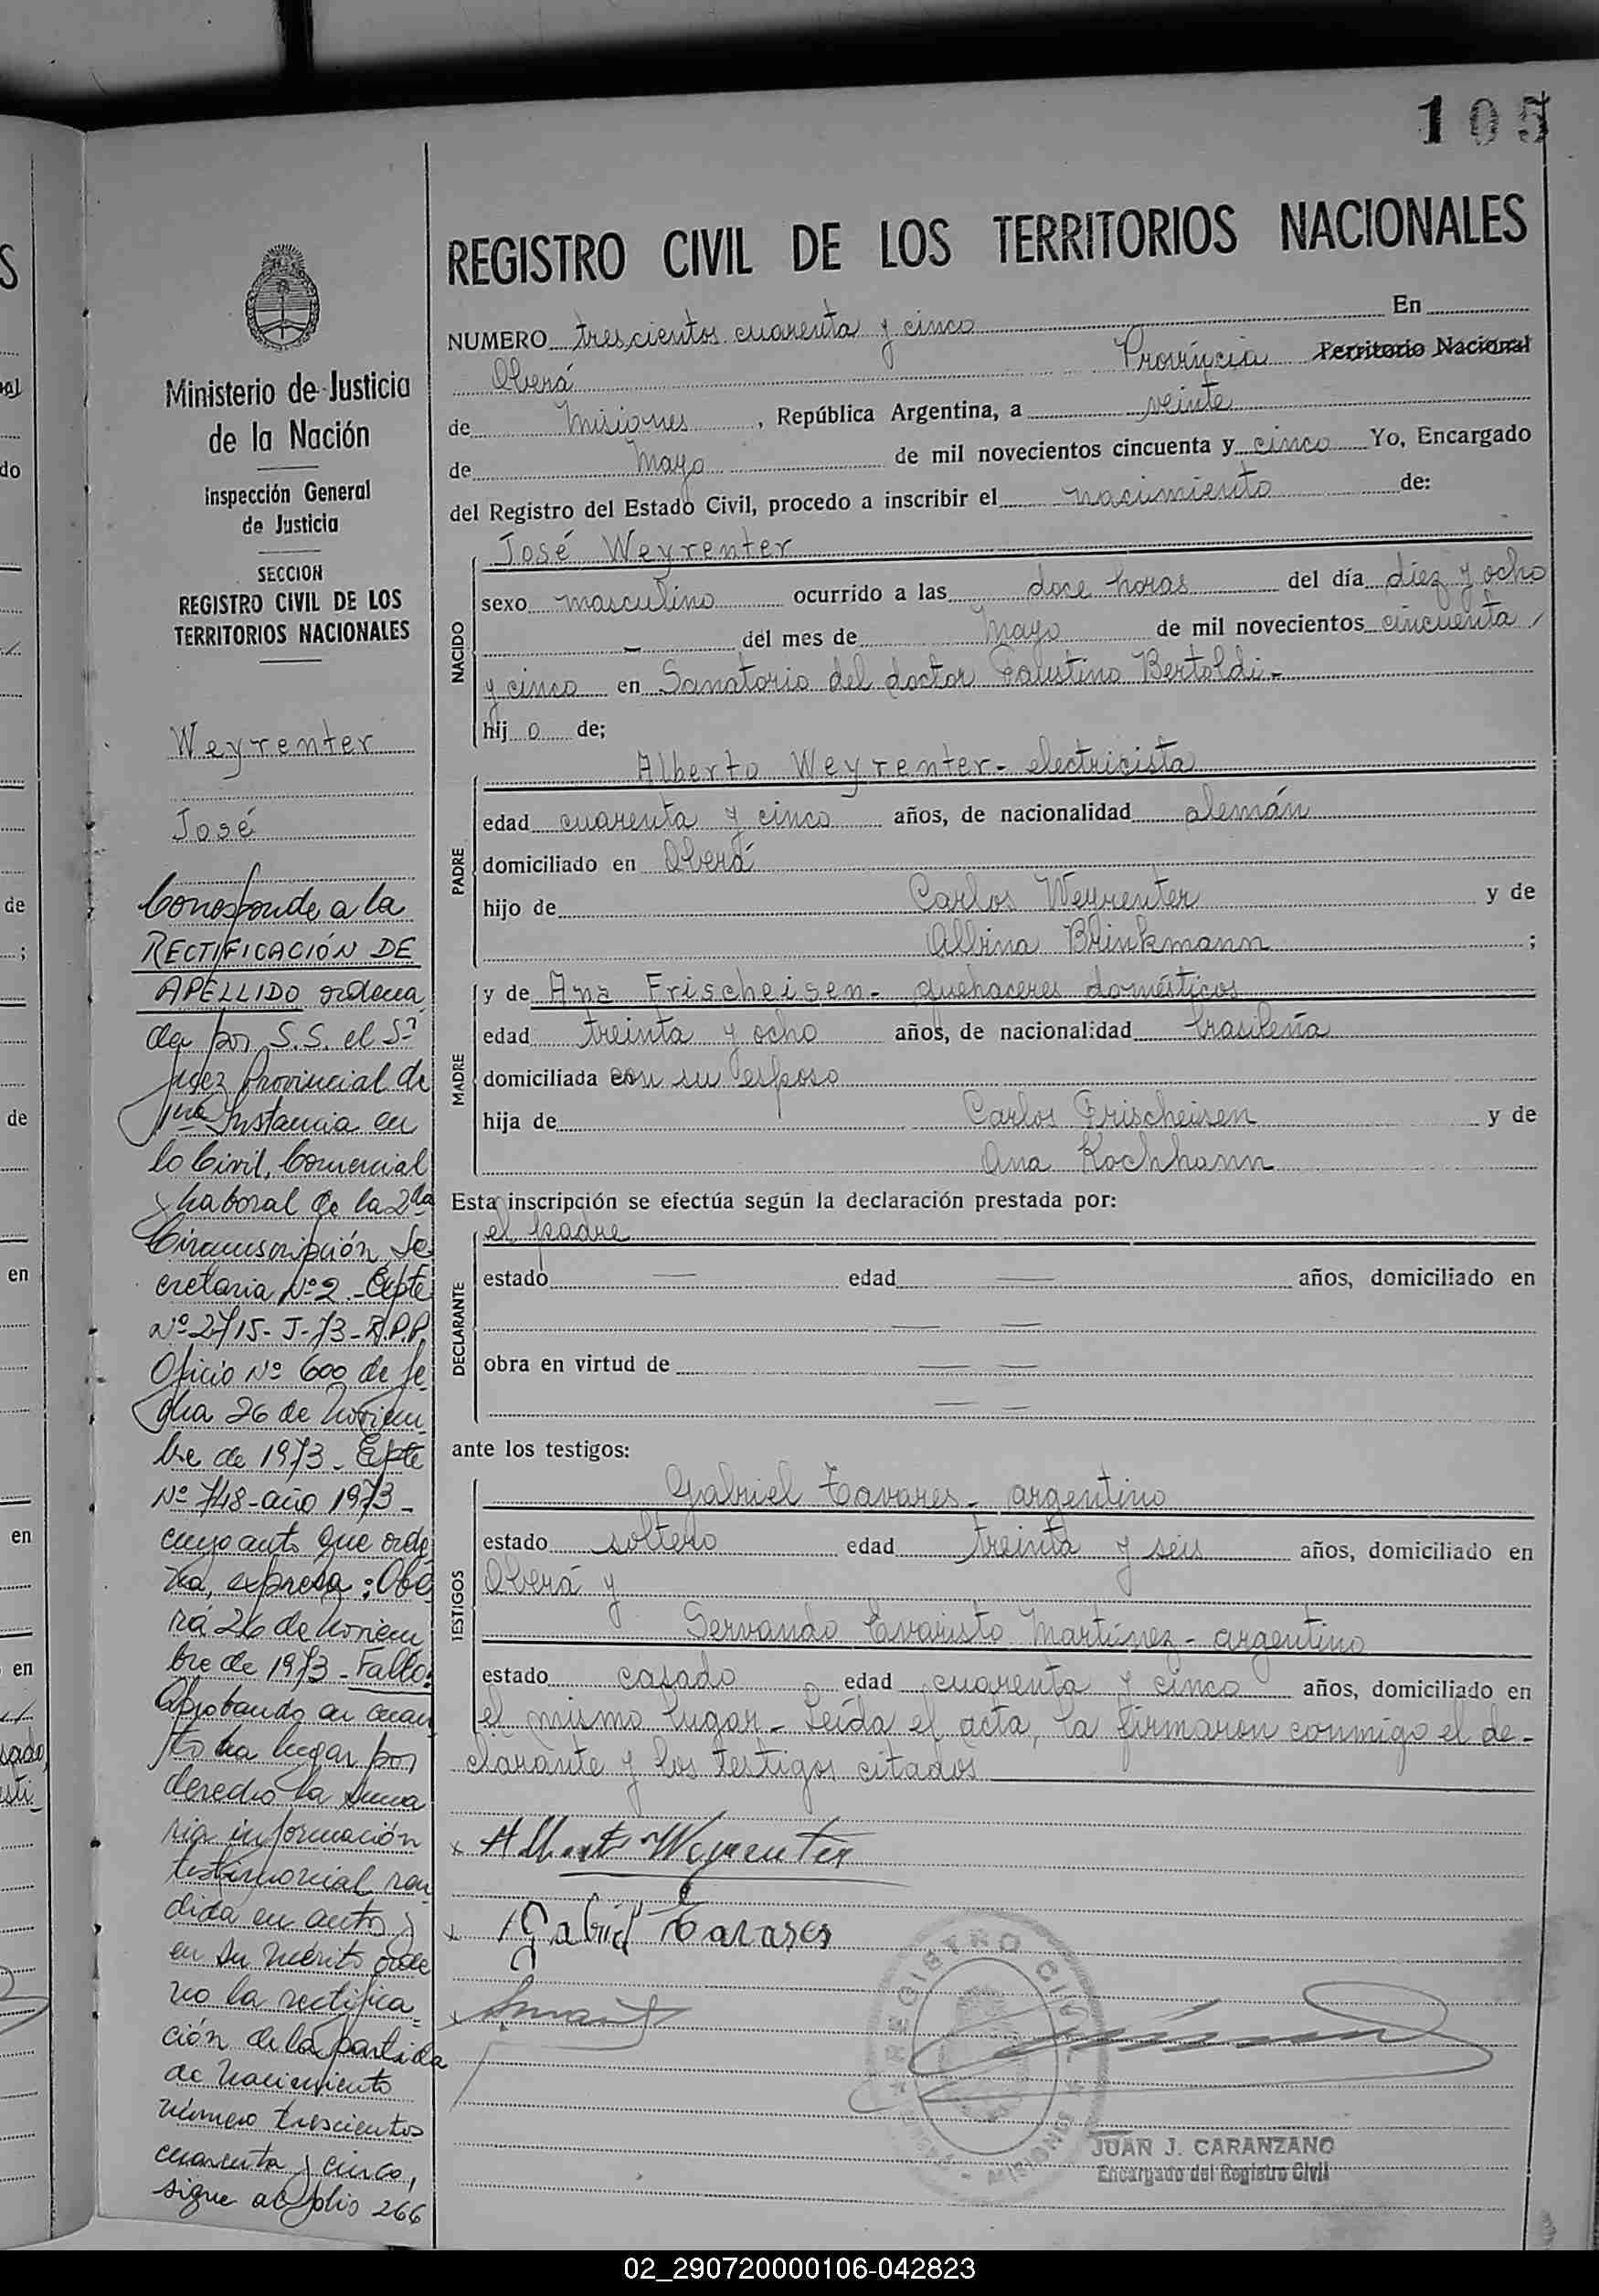 105
REGISTRO CIVIL DE LOS TERRITORIOS NACIONALES
NUMERO trescientos cuarenta y cinco En
Oberá Provincia Territorio Nacional
de Misiones, República Argentina, a veinte
de Mayo de mil novecientos cincuenta y cinco Yo, Encargado
del Registro del Estado Civil, procedo a inscribir el nacimiento de:
NACIDO
José Weyrenter
sexo masculino ocurrido a las doce horas del día diez y ocho
— del mes de Mayo de mil novecientos cincuenta
y cinco en Sanatorio del doctor Faustino Bertoldi-
hij o de;
PADRE
Alberto Weyrenter- electricista
edad cuarenta y cinco años, de nacionalidad alemán
domiciliado en Oberá
hijo de Carlos Weyrenter y de
Albina Brinkmann ;
MADRE
y de Ana Frischeisen- quehaceres domésticos
edad treinta y ocho años, de nacionalidad brasileña
domiciliada con su esposo
hija de Carlos Frischeisen y de
Ana Kochhann
Esta inscripción se efectúa según la declaración prestada por:
DECLARANTE
el padre
estado — edad — años, domiciliado en
— —
obra en virtud de — —
— —
ante los testigos:
TESTIGOS
Gabriel Tavares- argentino
estado soltero edad treinta y seis años, domiciliado en
Oberá y
Servando Evaristo Martinez- argentino
estado casado edad cuarenta y cinco años, domiciliado en
el mismo lugar- Leída el acta, la firmaron conmigo el de-
clarante y los testigos citados
x Albert Weyrenter
x Gabriel Tavares
x
REGISTRO CIVIL
MISIONES
JUAN J. CARANZANO
Encargado del Registro Civil
Ministerio de Justicia
de la Nación
Inspección General
de Justicia
SECCION
REGISTRO CIVIL DE LOS
TERRITORIOS NACIONALES
Weyrenter
José
Corresponde a la
RECTIFICACIÓN DE
APELLIDO ordena
da por S.S. el Sr
Juez Provincial de
1ra Instancia en
lo Civil, Comercial
y Laboral de la 2da
Circunscripción, Se
cretaria Nº 2 - Expte
Nº 2715- J-73- R.P.P.
Oficio Nº 600 de fe
cha 26 de Noviem
bre de 1973 - Expte
Nº 748- año 1973 -
cuyo auto que orde
na, expresa: Obe
rá 26 de Noviem
bre de 1973 - Fallo:
Aprobando en cuan
to ha lugar por
derecho la suma
ria información
testimonial ren
dida en autos y
en su mérito orde
no la rectifica
ción de la partida
de Nacimiento
número trescientos
cuarenta y cinco,
sigue al folio 266
S
do
de
;
de
en
en
en
02_290720000106-042823